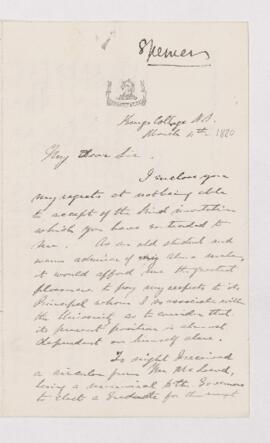 Spencer
Kings College N.S.
March 4th, 1880
My Dear Sir.
I enclose you
my regrets at not being able
to accept of the kind invitation
which you have extended to
me. As an old student and
warm admirer of my Alma Mater,
it would afford me the greatest
pleasure to pay my respects to its
Principal whom I so associate with
the University as to consider that
its present position is almost
dependent on himself alone.
To night I received
a circular from Wm McLeod,
being a memorial to the Governors
to elect a Graduate for the